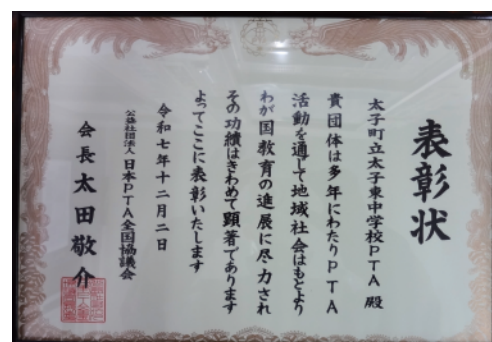 表彰状
太子町立太子東中学校PTA 殿
貴団体は多年にわたりPTA
活動を通して地域社会はもとより
わが国教育の進展に尽力され
その功績はきわめて顕著であります
よってここに表彰いたします
令和七年十二月二日
公益社団法人 日本PTA全国協議会
会長 太田敬介